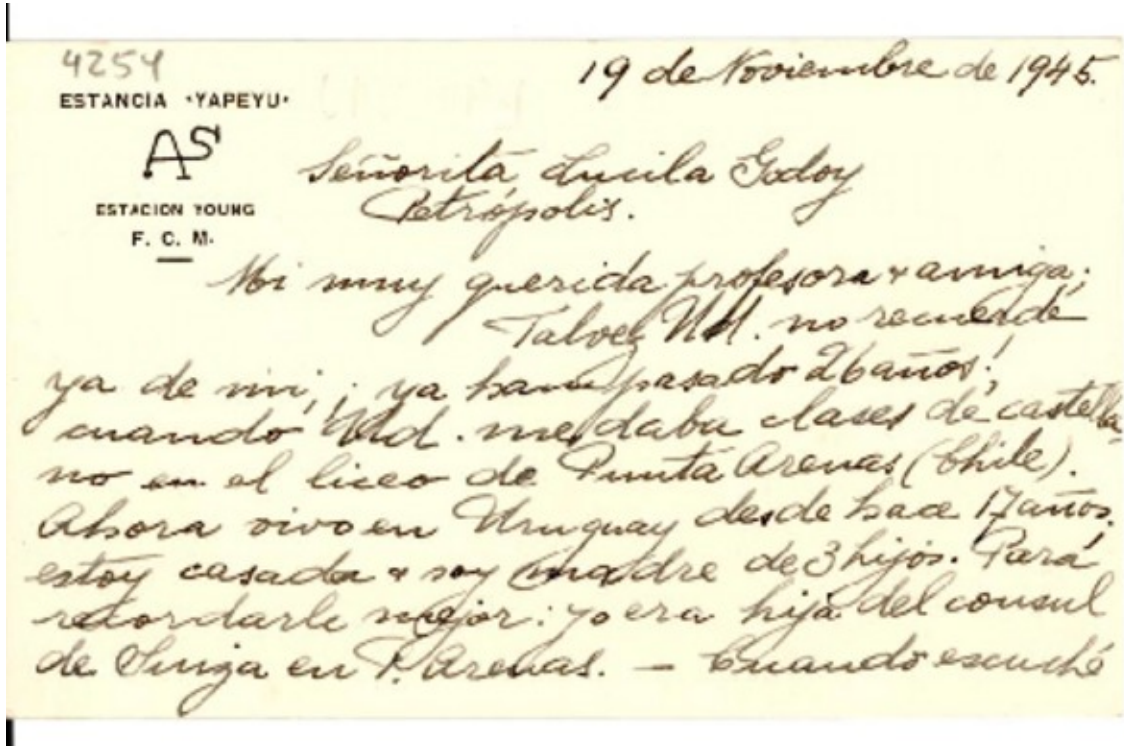 4254
19 de Noviembre de 1945.
ESTANCIA "YAPEYU"
AS
ESTACION YOUNG
F. C. M.
Señorita Lucila Godoy
Petrópolis.
Mi muy querida profesora & amiga:
Talvez Ud. no recuerde
ya de mi, ¡ya han pasado 26 años!
cuando Ud. me daba clases de castella
no en el liceo de Punta Arenas (Chile).
Ahora vivo en Uruguay desde hace 17 años,
estoy casada & soy madre de 3 hijos. Para
recordarle mejor: yo era hija del consul
de Suiza en P. Arenas. — Cuando escuché